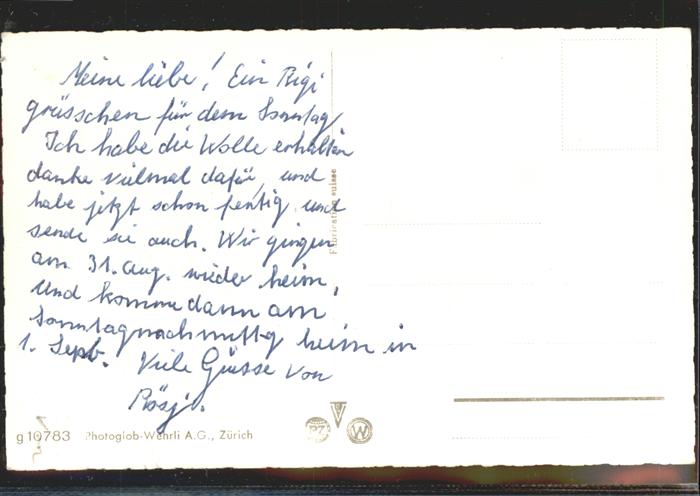 Meine liebe! Ein Rigi
grüsschen für dem Sonntag
Ich habe die Wolle erhalten
danke vielmal dafür, und
habe jetzt schon fertig und
sende sie auch. Wir gingen
am 31. Aug. wieder heim,
und komme dann am
Sonntagnachmittg heim in
1. Sept. Viele Grüsse von
Rösj.
Fabrication suisse
g 10783 Photoglob-Wehrli A.G., Zürich
PZ W